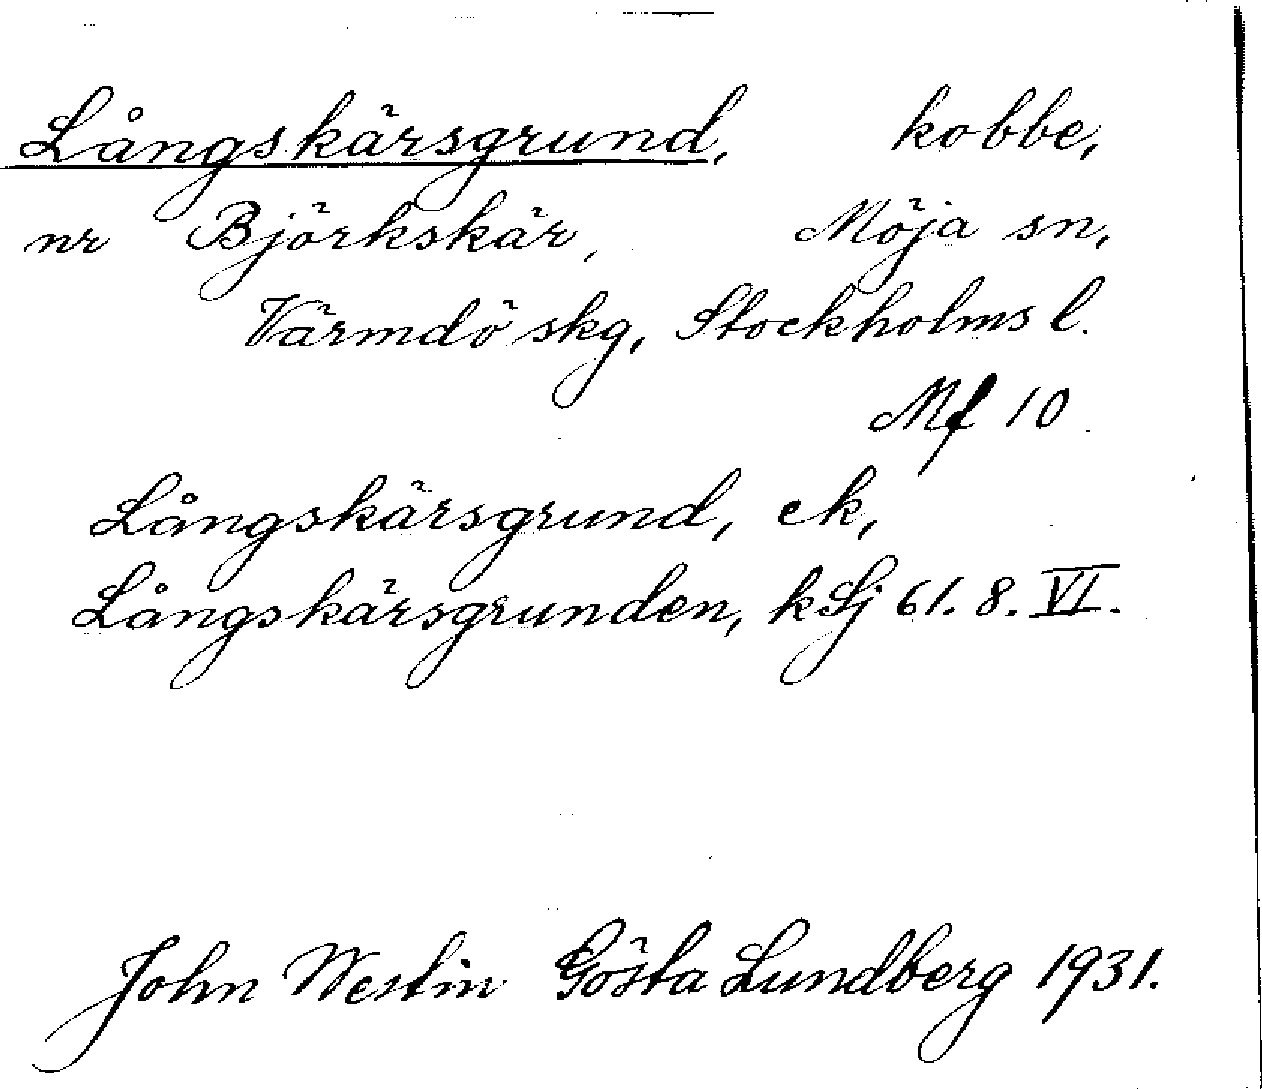 Långskärsgrund, kobbe,
nr Björkskär, Möja sn,
Värmdö skg, Stockholms l.
Mf 10.
Långskärsgrund, ek,
Långskärsgrunden, k Sj 61. 8. VI.
John Westin Gösta Lundberg 1931.